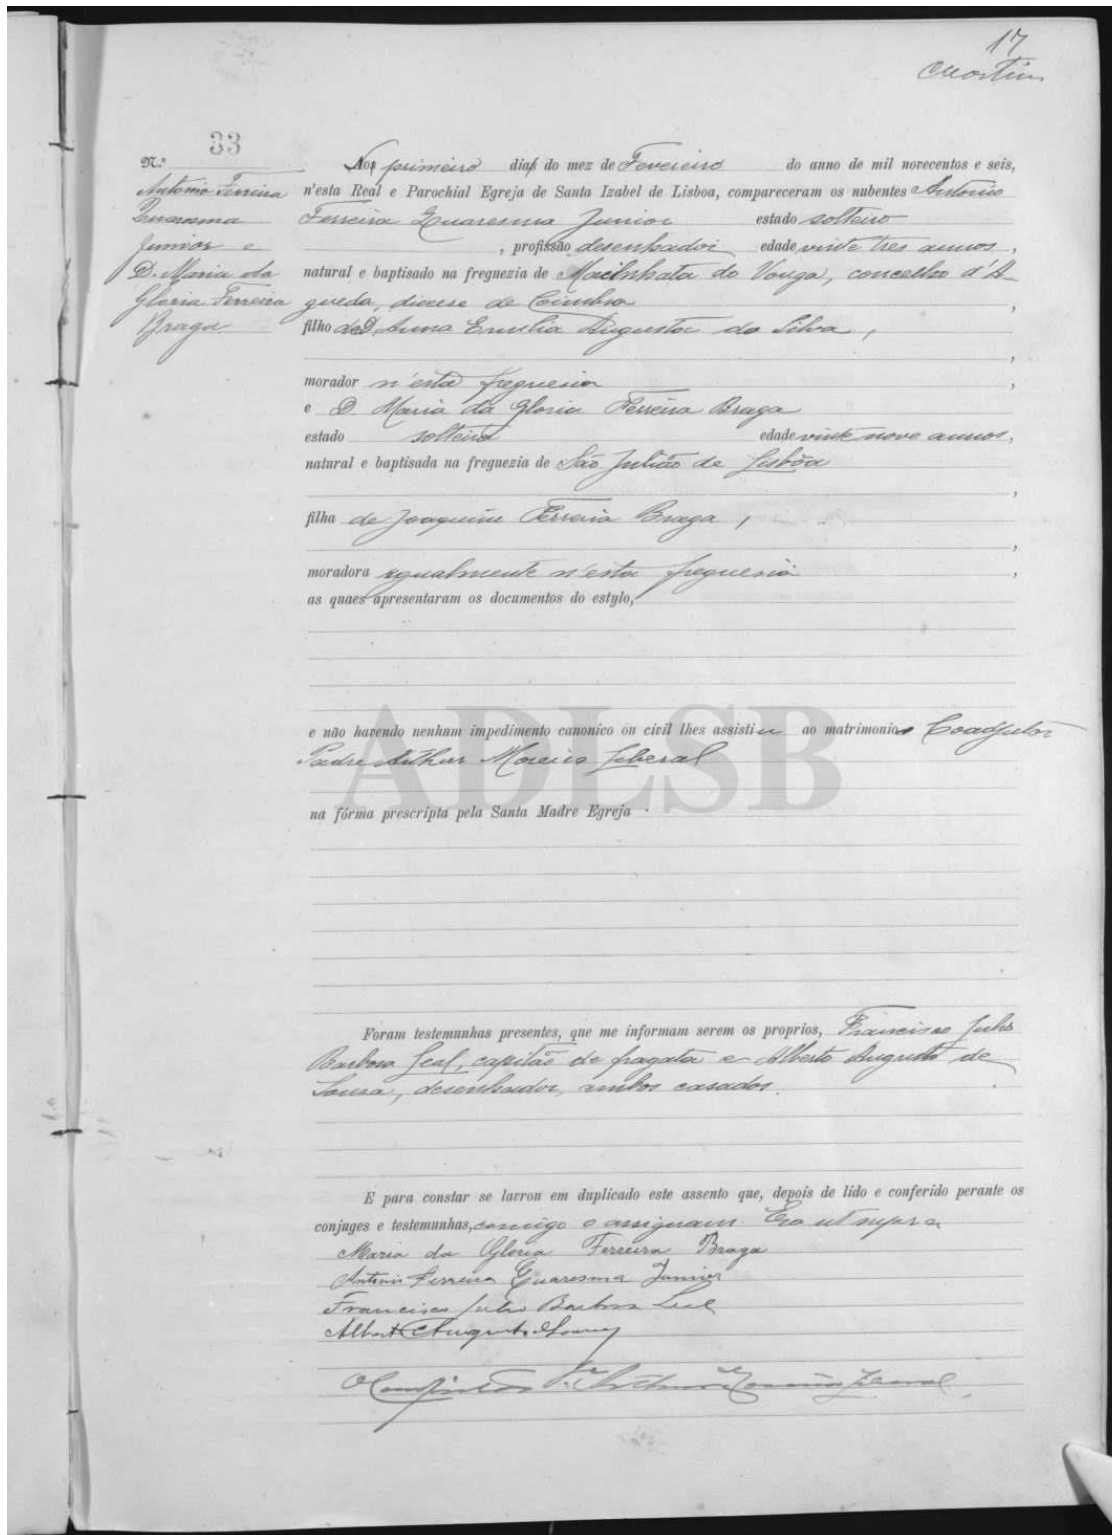 17
Martins
N.º 33
Antonio Ferreira
Quaresma
Junior e
D. Maria da
Gloria Ferreira
Braga
No primeiro dia do mez de Fevereiro do anno de mil novecentos e seis,
n'esta Real e Parochial Egreja de Santa Izabel de Lisboa, compareceram os nubentes Antonio
Ferreira Quaresma Junior estado solteiro
, profissão desenhador edade vinte tres annos,
natural e baptisado na freguezia de Macinhata do Vouga, concelho d'A-
gueda, diocese de Coimbra,
filho de D. Anna Emilia Augusta da Silva,
,
morador n'esta freguesia,
e D. Maria da Gloria Ferreira Braga
estado solteira edade vinte nove annos,
natural e baptisada na freguezia de São Julião de Lisbôa
,
filha de Joaquim Ferreira Braga,
,
moradora egualmente n'esta freguesia,
as quaes apresentaram os documentos do estylo,
e não havendo nenhum impedimento canonico ou civil lhes assistiu ao matrimonio o Coadjutor
Padre Arthur Moreira Liberal
na fórma prescripta pela Santa Madre Egreja.
ADLSB
Foram testemunhas presentes, que me informam serem os proprios, Francisco Julio
Barbosa Leal, capitão de fragata e Alberto Augusto de
Sousa, desenhador, ambos casados.
E para constar se lavrou em duplicado este assento que, depois de lido e conferido perante os
conjuges e testemunhas, comigo o assignam. Era ut supra
Maria da Gloria Ferreira Braga
Antonio Ferreira Quaresma Junior
Francisco Julio Barbosa Leal
Alberto Augusto Sousa
O Coadjutor P.e Arthur Moreira Liberal